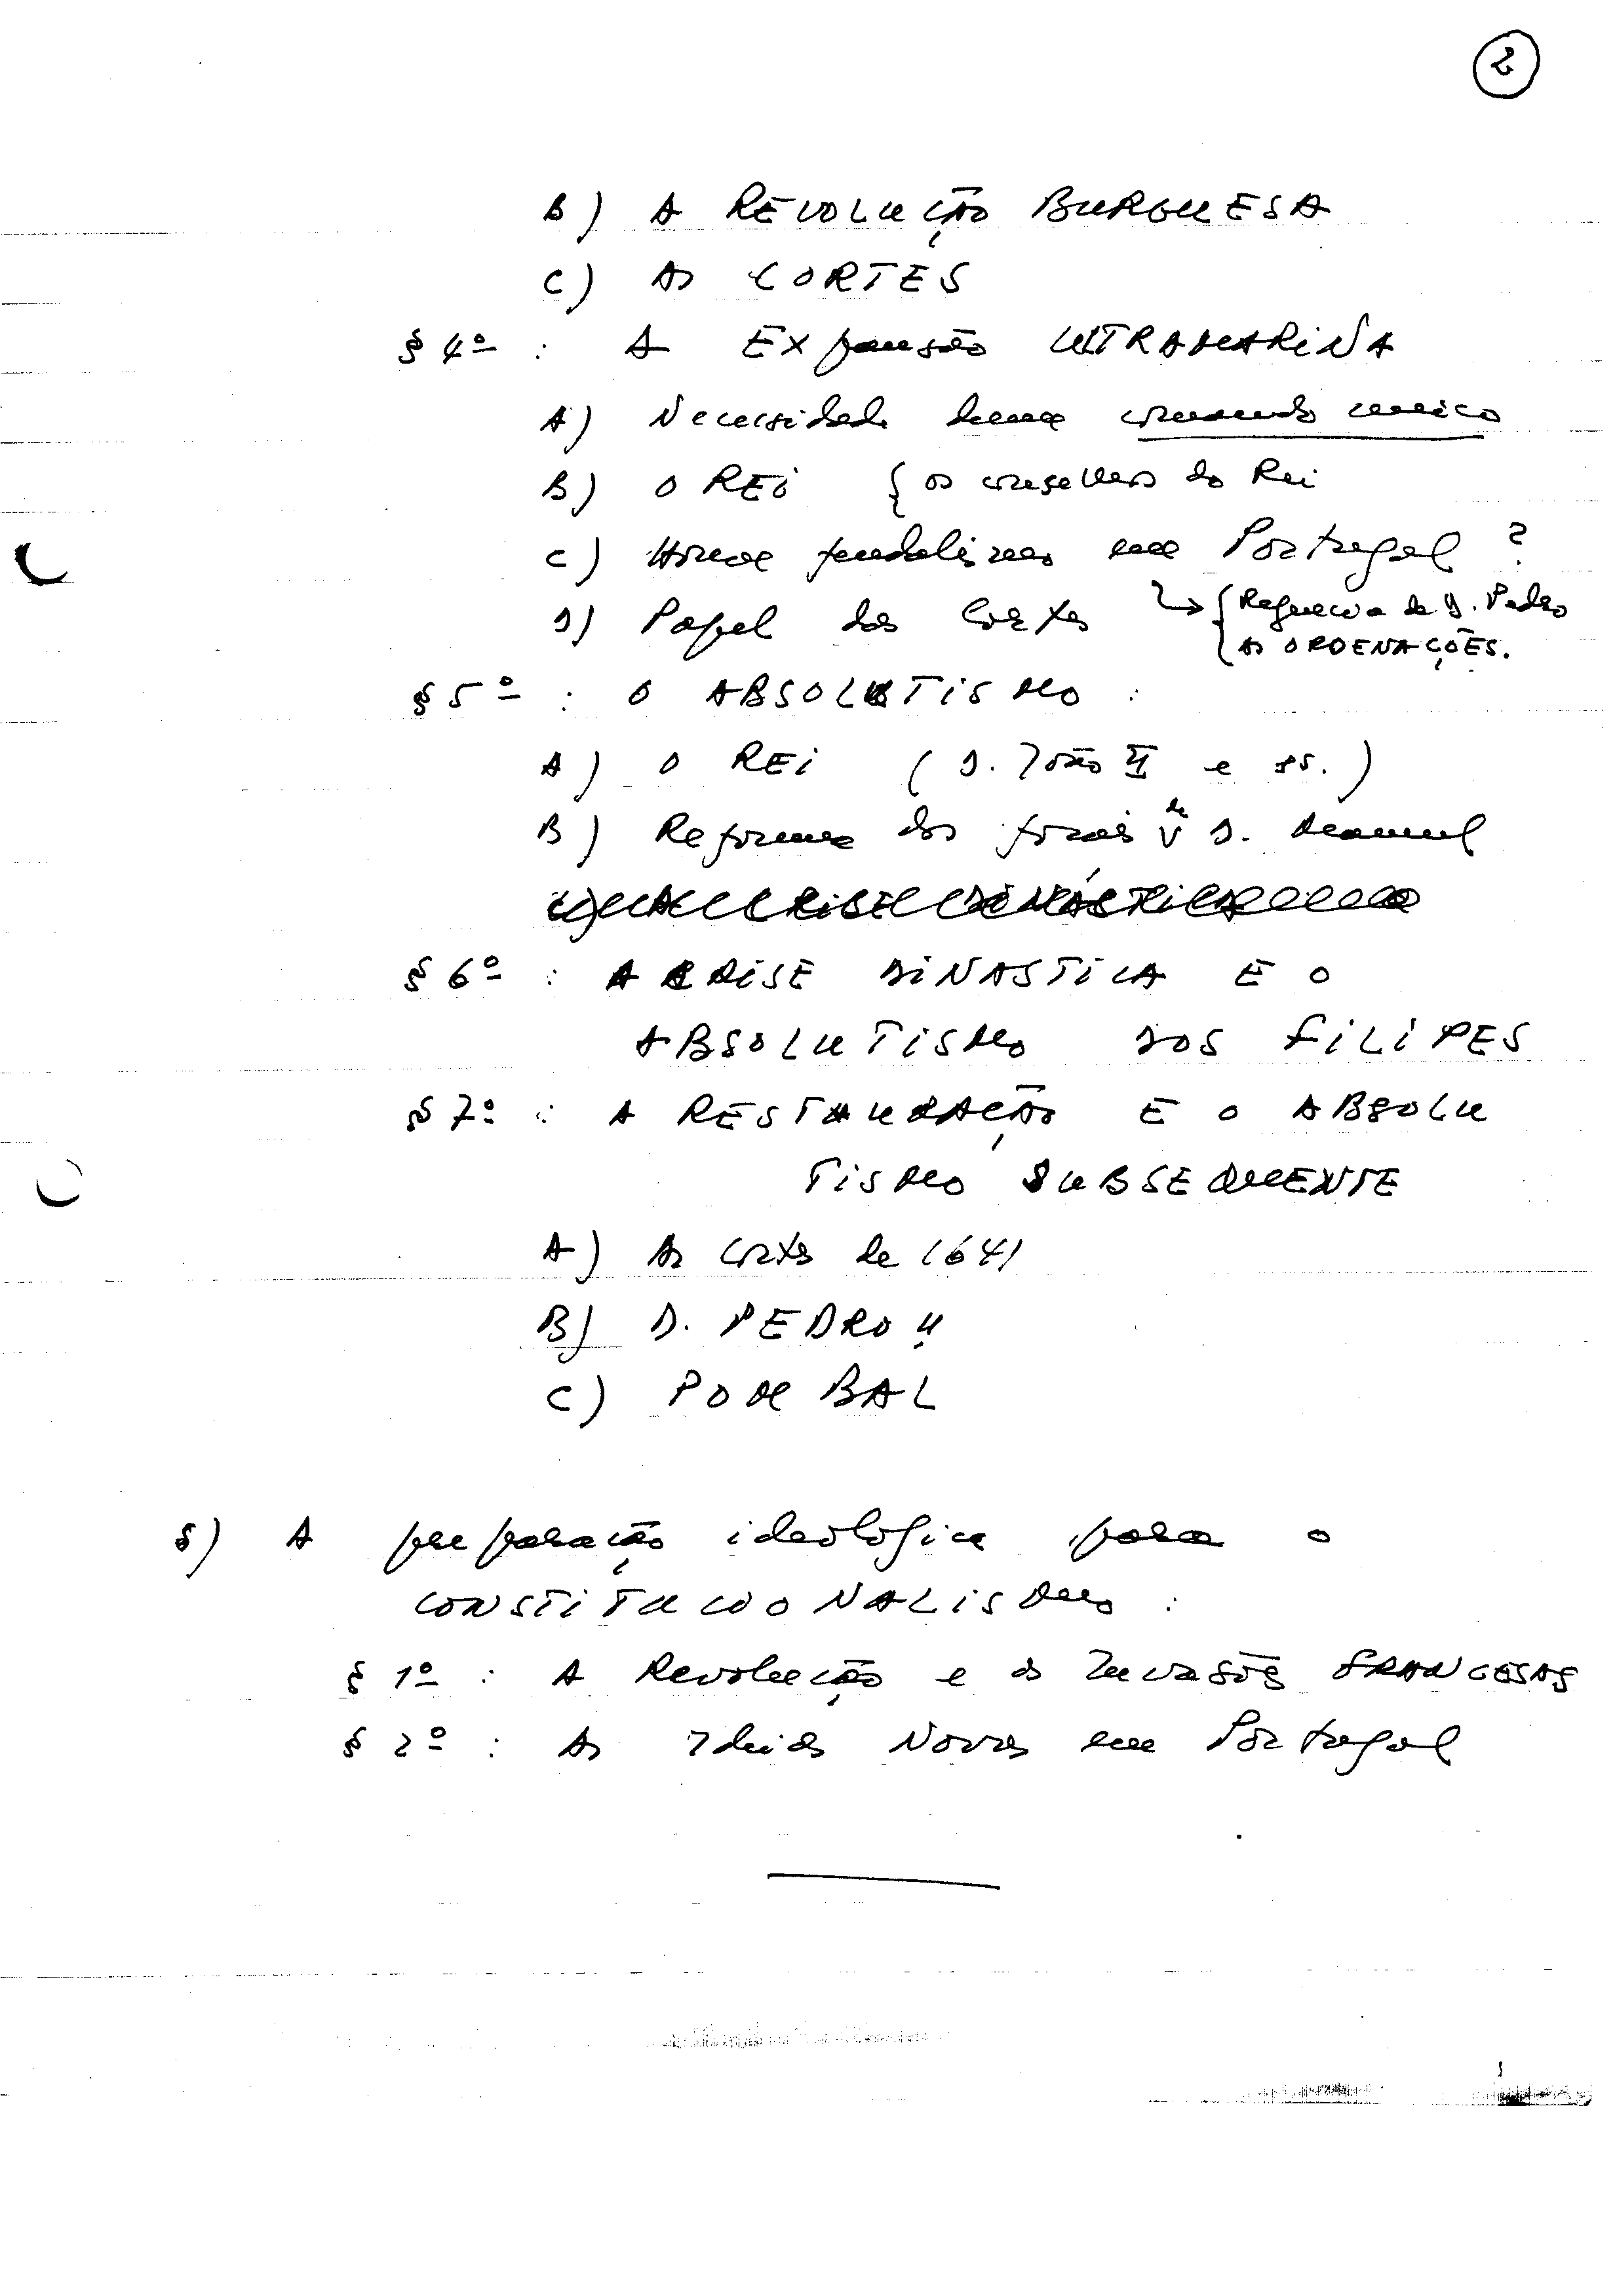 2
B) A REVOLUÇÃO BURGUESA
C) As CORTES
§ 4º : A Expansão ULTRAMARINA
A) Necessidade duma comando único
B) O REi { os conselhos do Rei
C) Houve feudalismo em Portugal ?
D) Papel das Cortes ↳ { Regência de D. Pedro
{ As ORDENAÇÕES.
§ 5º : O ABSOLUTISMO :
A) O REi ( D. João II e ss. )
B) Reforma dos forais de D. Manuel
C) A CRISE DINÁSTICA
§ 6º : A CRISE DINASTICA E O
ABSOLUTISMO DOS FiLiPES
§ 7º : A RESTAURAÇÃO E O ABSOLU
TISMO SUBSEQUENTE
A) As Cortes de 1641
B) D. PEDRO II
C) POMBAL
A preparação ideológica para o
CONSTITUCIONALISMO :
§ 1º : A Revolução e as Invasões FRANCESAS
§ 2º : As Ideias Novas em Portugal